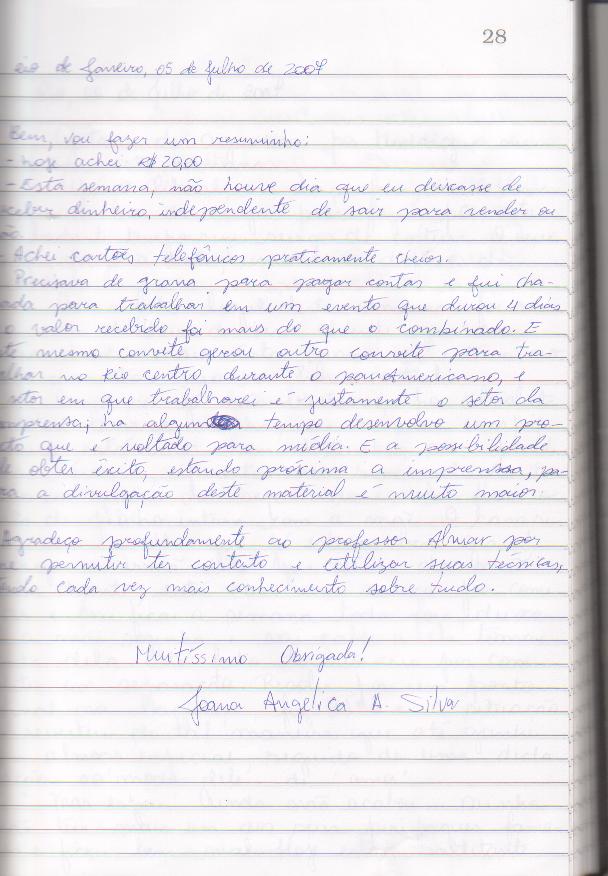 28
rio de Janeiro, 05 de Julho de 2007
Bem, vou fazer um resuminho:
- Hoje achei R$ 20,00
- Esta semana, não houve dia que eu deixasse de
ceber dinheiro, independente de sair para vender ou
ão.
- Achei cartões telefônicos praticamente cheios.
- Precisava de grana para pagar contas e fui cha-
ada para trabalhar em um evento que durou 4 dias
o valor recebido foi mais do que o combinado. E
te mesmo convite gerou outro convite para tra-
alhar no Rio centro durante o panAmericano, e
setor em que trabalharei é justamente o setor da
mprensa; ha algum tempo desenvolvo um pro-
eto que é voltado para mídia. E a possibilidade
de obter êxito, estando próxima a imprensa, pa-
ra a divulgação deste material é muito maior.
Agradeço profundamente ao professor Almar por
me permitir ter contato e utilizar suas técnicas,
endo cada vez mais conhecimento sobre tudo.
Muitíssimo Obrigada!
Joana Angélica A. Silva